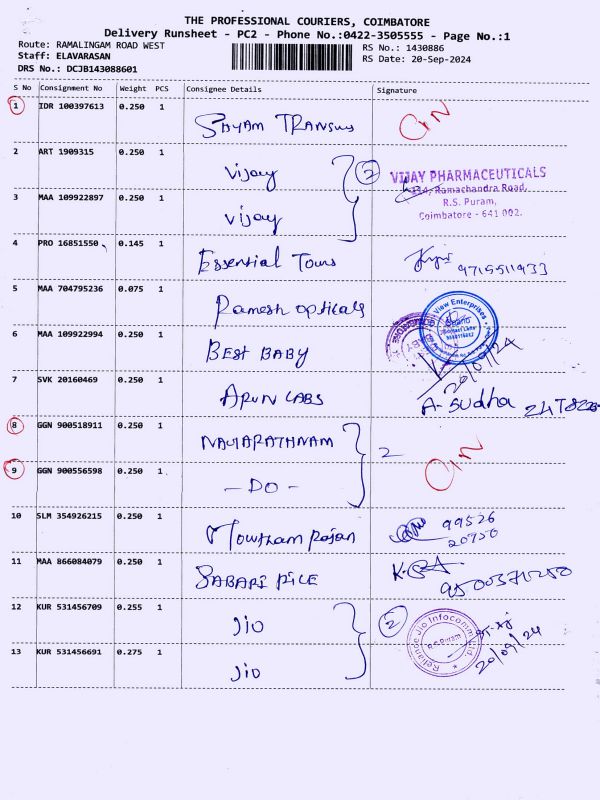 THE PROFESSIONAL COURIERS, COIMBATORE
Delivery Runsheet - PC2 - Phone No.:0422-3505555 - Page No.:1
Route: RAMALINGAM ROAD WEST
RS No.: 1430886
Staff: ELAVARASAN
RS Date: 20-Sep-2024
DRS No.: DCJB143088601
S No Consignment No Weight PCS Consignee Details Signature
1 IDR 100397613 0.250 1
SHYAM
2 ART 1909315 0.250 1
Vijay 2
VIJAY PHARMACEUTICALS
Ramachandra Road,
R.S. Puram,
Coimbatore - 641 002.
3 MAA 109922897 0.250 1
Vijay
4 PRO 16851550 0.145 1
Essential Tours
9715511933
5 MAA 704795236 0.075 1
Ramesh opticals
View Enterprises
6 MAA 109922994 0.250 1
BEST BABY
20/09/24
7 SVK 20160469 0.250 1
ARUN LABS
A. Sudha
8 GGN 900518911 0.250 1
NAVARATHNAM 2
9 GGN 900556598 0.250 1
- DO -
10 SLM 354926215 0.250 1
99526
20950
11 MAA 866084079 0.250 1
SABARI
12 KUR 531456709 0.255 1
Jio 2
Reliance Jio Infocomm Ltd.
R.S.Puram
13 KUR 531456691 0.275 1
Jio
20/09/24